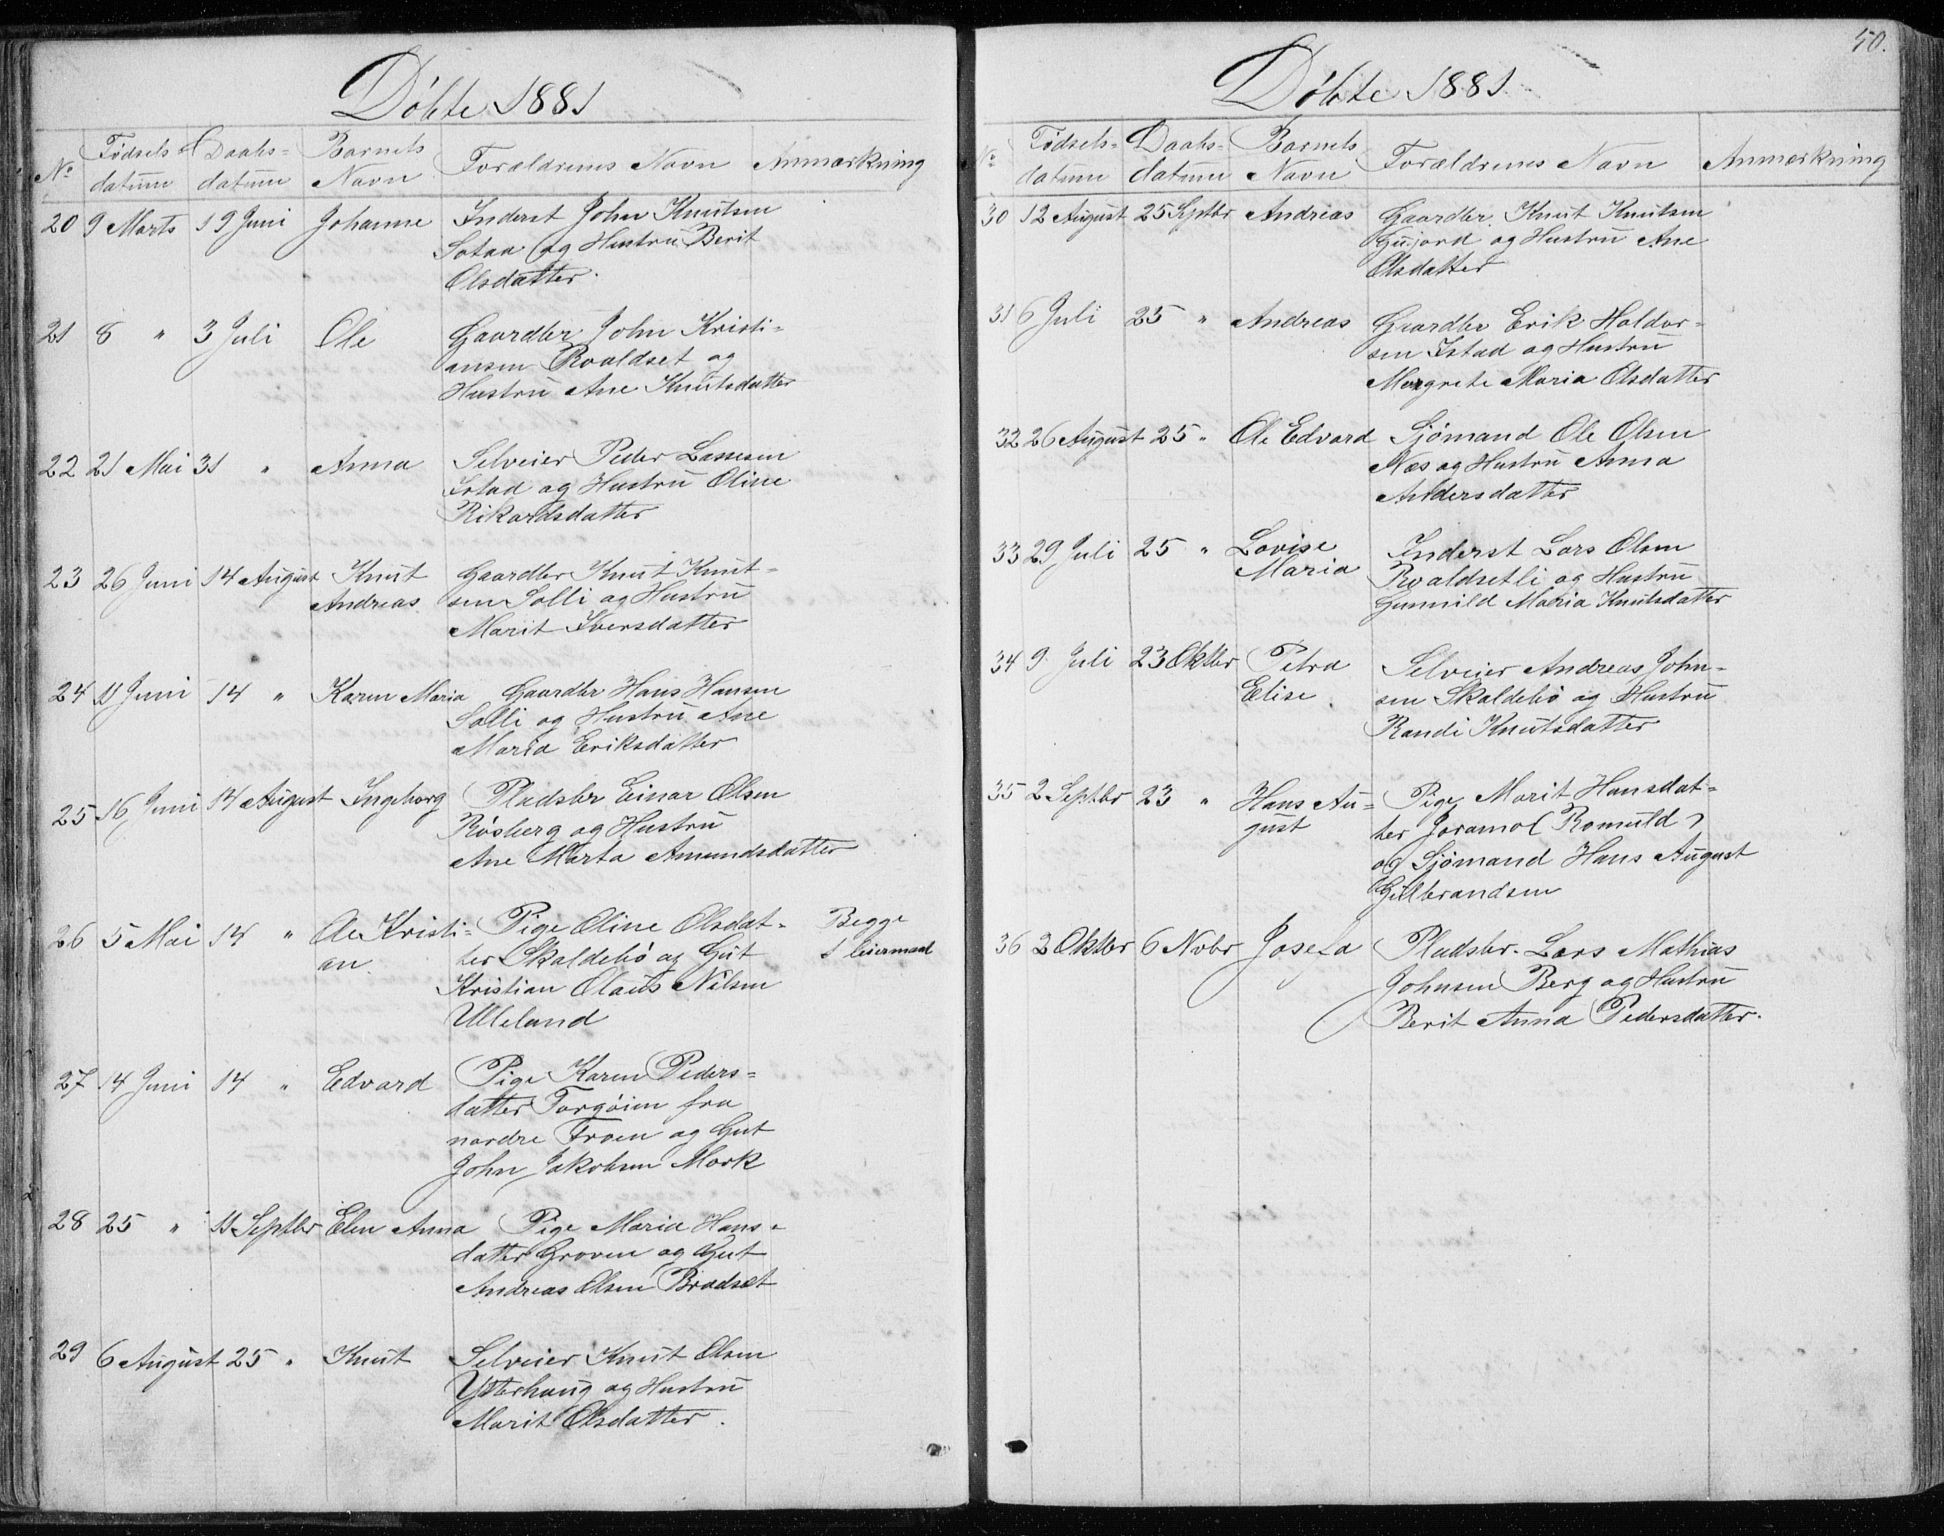 Döbte 1881
No Födsels datum Daabs- datum Barnets Navn Forældrenes Navn Anmærkning
20 9 Marts 19 Juni Johanne Inderst John Knutsen
Sotaa og Hustrü Berit
Olsdatter.
21 8 " 3 Juli Ole Gaardbr John Kristi-
ansen Roaldset og
Hustrü Ane Knutsdatter
22 21 Mai 31 " Anna Selveier Peder Lassesen
Istad og Hustrü Oline
Rikardsdatter
23 26 Juni 14 August Knut Gaardbr Knut Knut-
Andreas sen Solli og Hustrü
Marit Iversdatter
24 11 Juni 14 " Karen Maria Gaardbr Hans Hansen
Solli og Hustrü Ane
Maria Eriksdatter
25 16 Juni 14 August Ingeborg Pladsbr Einar Olsen
Rösberg og Hustrü
Ane Marta Amundsdatter
26 5 Mai 14 " Ole Kristi- Pige Oline Olsdat- Begge
an. ter Skaldebö og Gut 1 leiermaal
Kristian Olaus Nilsen
Ulleland
27 14 Juni 14 " Edvard Pige Karen Peders-
datter Torgöien fra
nordre Froen og Gut
John Jakobsen Mork
28 25 " 11 Septbr Elen Anna Pige Maria Hans-
datter Groven og Gut
Andreas Olsen Bradset
29 6 August 25 " Knut Selveier Knut Olsen
Ytterhaug og Hustrü
Marit Olsdatter.
50.
Döbte 1881
No Födsels- datum Daabs- datum Barnets Navn Forældrenes Navn Anmærkning
30 12 August 25 Septbr Andreas Gaardbr Knut Knutsen
Gujord og Hustrü Ane
Olsdatter
31 6 Juli 25 " Andreas Gaardbr Erik Haldor-
sen Istad og Hustru
Margrete Maria Olsdatter
32 26 August 25 " Ole Edvard Sjömand Ole Olsen
Næs og Hustrü Anna
Andersdatter
33 29 Juli 25 " Lovise Inderst Lars Olsen
Maria Roaldsetli og Hustrü
Gunnild Maria Knutsdatter
34 9 Juli 23 Oktbr Petra Selveier Andreas John-
Elise sen Skaldebö og Hustrü
Randi Knutsdatter
35 2 Septbr 23 " Hans Au- Pige Marit Hansdat-
gust ter Joramo( Romuld )
og Sjömand Hans August
Gulbrandsen
36 2 Oktbr 6 Novbr Josefa Pladsbr. Lars Mathias
Johnsen Berg og Hustrü
Berit Anna Pedersdatter.